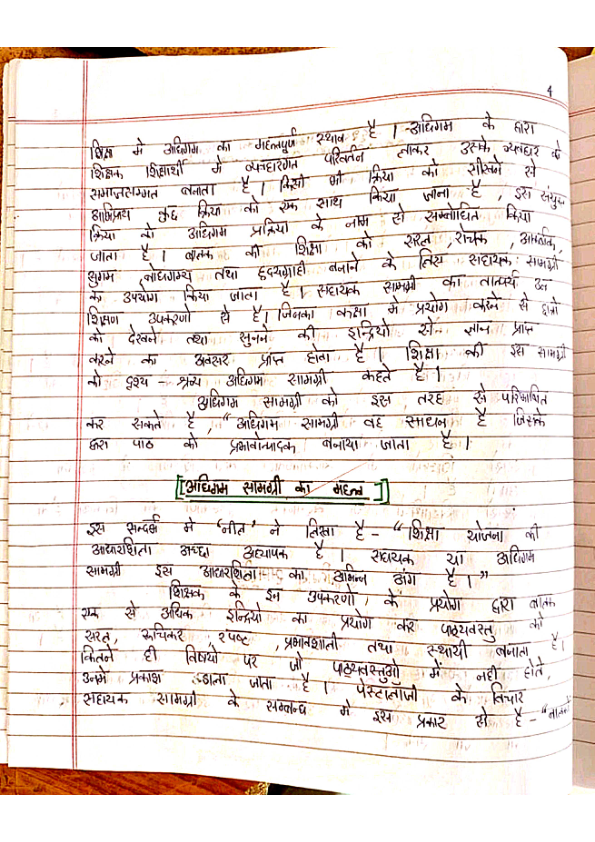 4
शिक्षा में अधिगम का महत्वपूर्ण स्थान है । अधिगम के द्वारा
शिक्षक शिक्षार्थी में व्यवहारगत परिवर्तन लाकर उसके व्यवहार को
समाजसम्मत बनाता है । किसी भी क्रिया को सीखने से
अभिप्राय कुछ क्रिया को एक साथ किया जाना है , इस संयुक्त
क्रिया को अधिगम प्रक्रिया के नाम से सम्बोधित किया
जाता है । बालक की शिक्षा को सरल, रोचक, आकर्षक,
सुगम, बोधगम्य तथा हृदयग्राही बनाने के लिए सहायक सामग्री
का उपयोग किया जाता है । सहायक सामग्री का तात्पर्य उन
शिक्षण उपकरणों से है। जिनका कक्षा में प्रयोग करने से छात्रों
को देखने तथा सुनने की इन्द्रियों से ज्ञान प्राप्त
करने का अवसर प्राप्त होता है । शिक्षा की इस सामग्री
को दृश्य - श्रव्य अधिगम सामग्री कहते है ।
अधिगम सामग्री को इस तरह से परिभाषित
कर सकते है , "अधिगम सामग्री वह साधन है जिसके
द्वारा पाठ को प्रभावोत्पादक बनाया जाता है ।
[अधिगम सामग्री का महत्व]
इस सन्दर्भ में 'नीत' ने लिखा है - "शिक्षा योजना की
आधारशिला अच्छा अध्यापक है । सहायक या अधिगम
सामग्री इस आधारशिला का अभिन्न अंग है ।"
शिक्षक के इन उपकरणों के प्रयोग द्वारा बालक
एक से अधिक इन्द्रियों का प्रयोग कर पाठ्यवस्तु को
सरल, रूचिकर, स्पष्ट, प्रभावशाली तथा स्थायी बनाता है।
कितने ही विषयो पर जो पाठ्यवस्तुओ में नही होते,
उनमे प्रकाश डाला जाता है । पेस्टालॉजी के विचार
सहायक सामग्री के सम्बन्ध मे इस प्रकार से है - "बालको